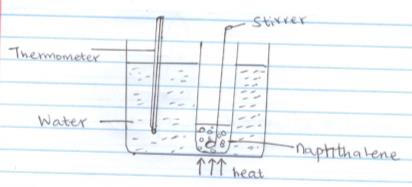 Stirrer
Thermometer
Water
Naphthalene
heat